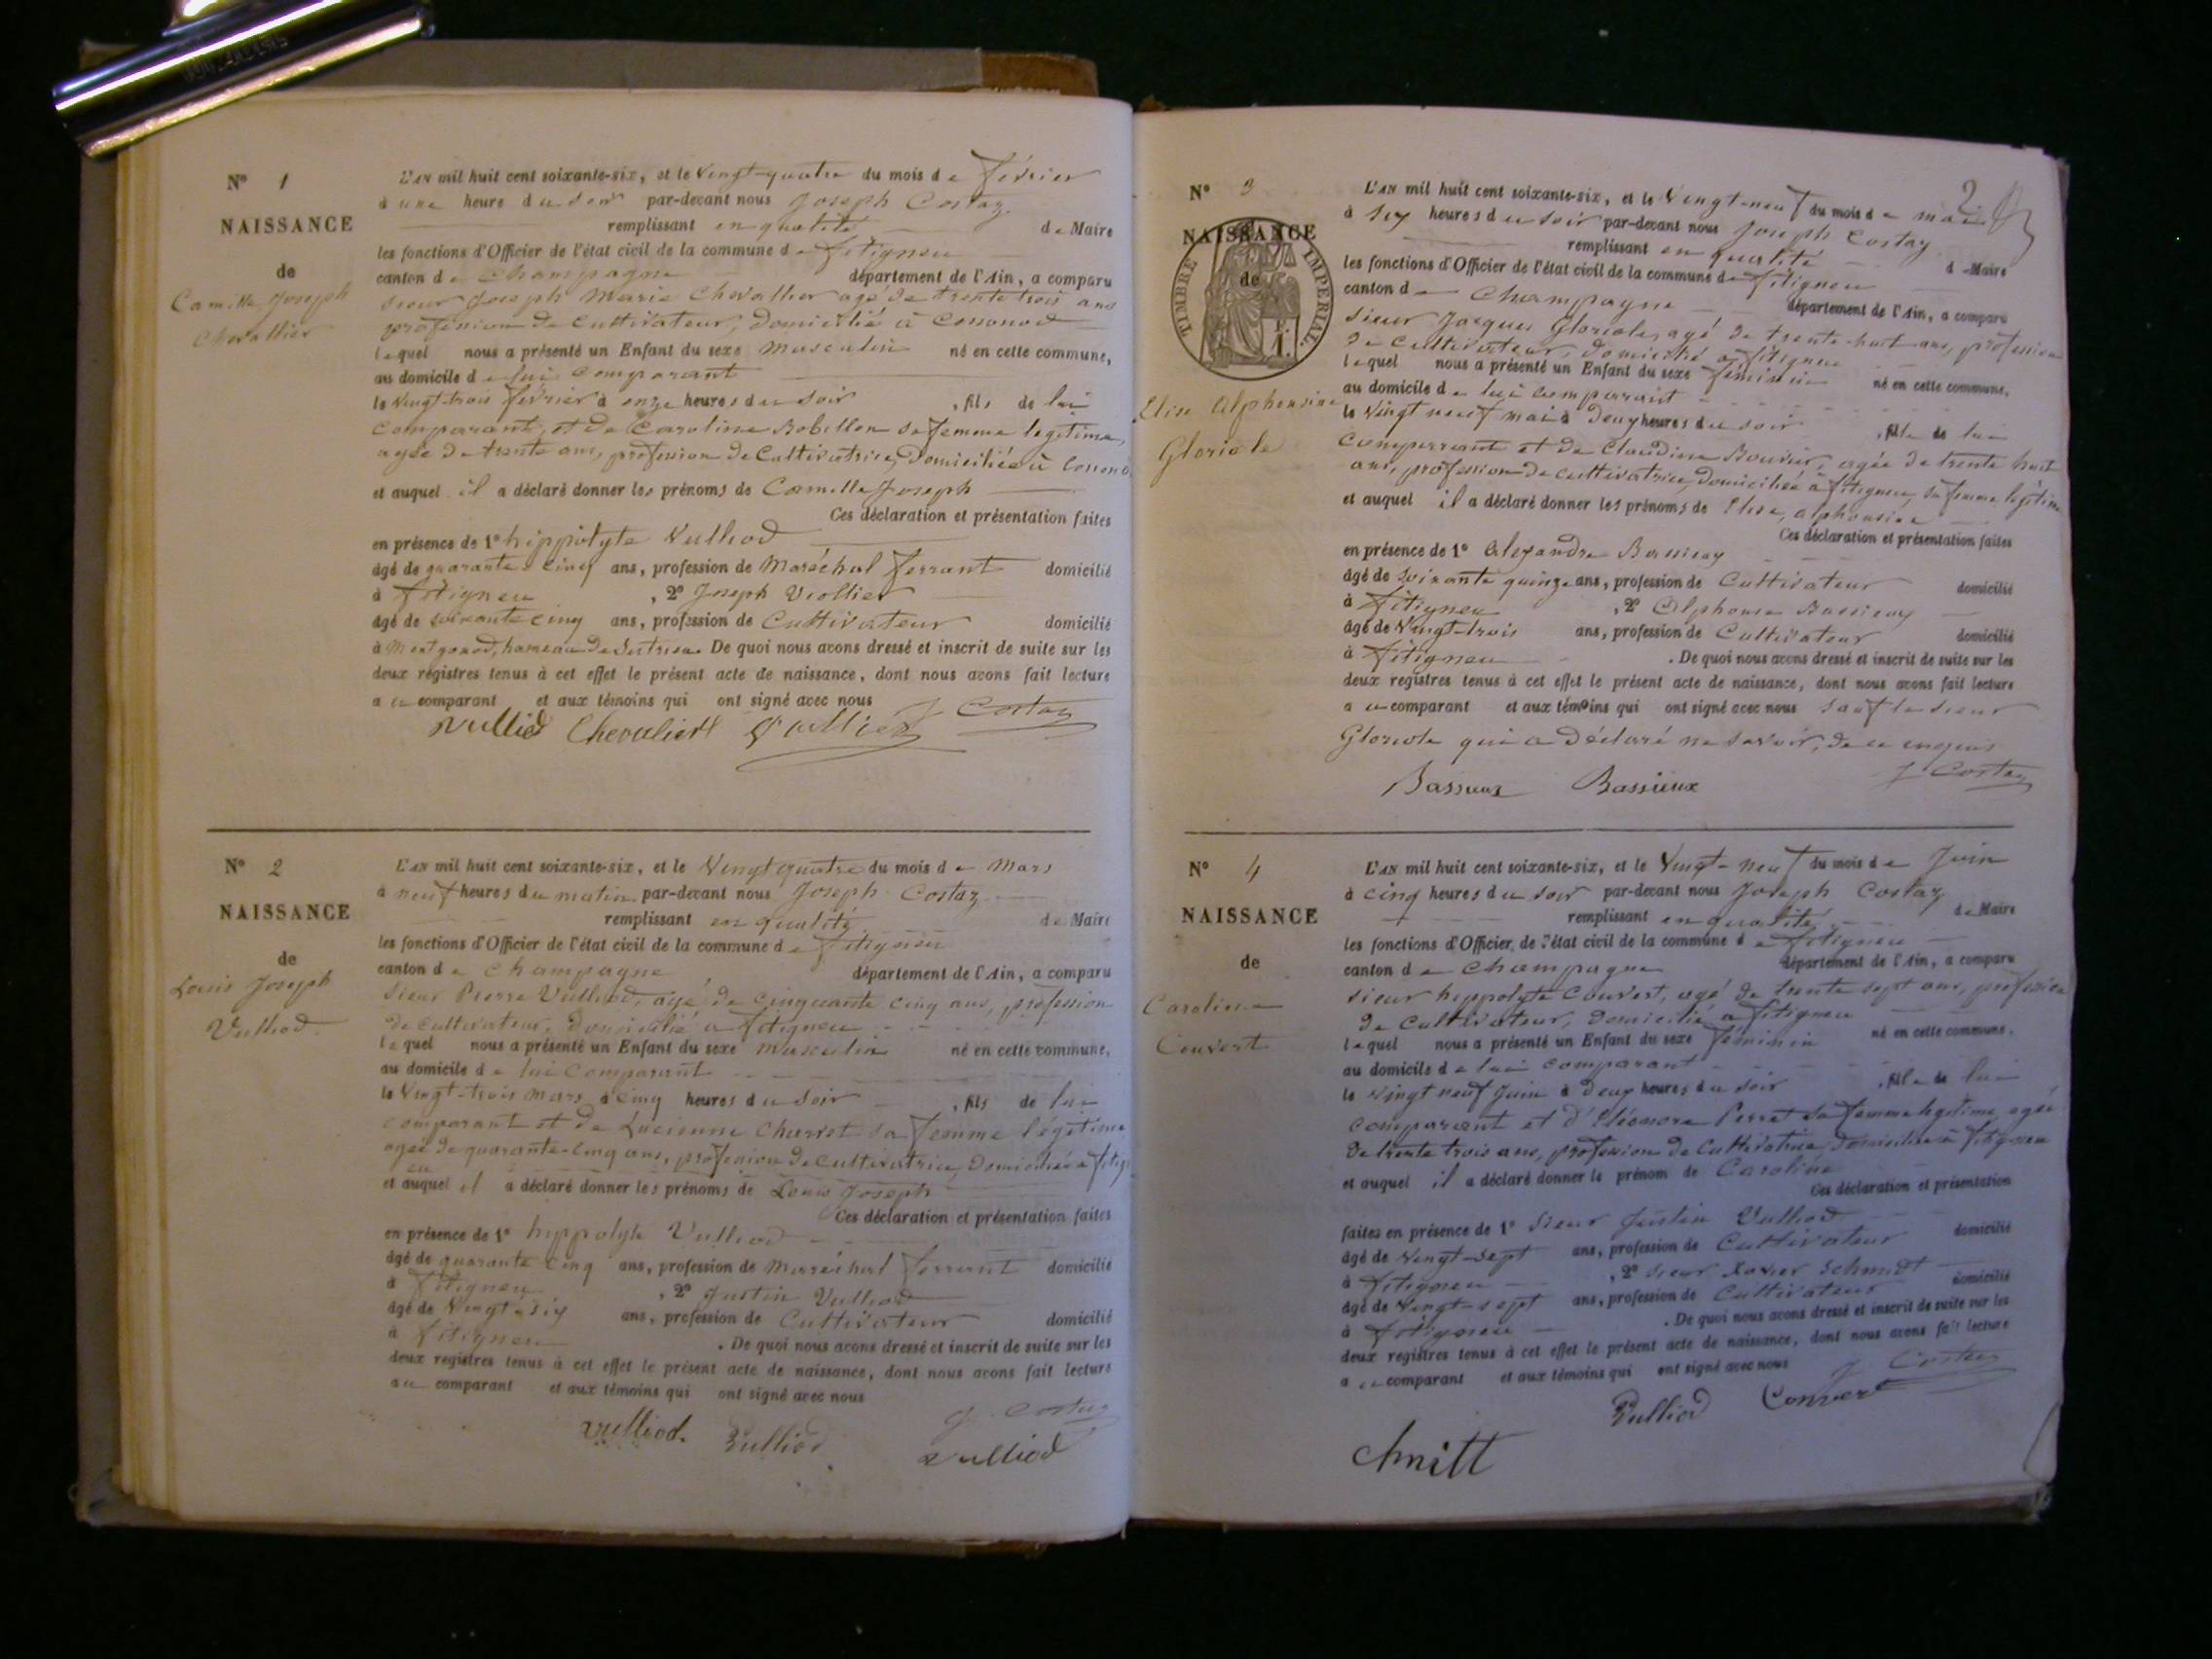 N° 1
NAISSANCE
de
Camille Joseph
Chevallier
L'AN mil huit cent soixante-six, et le Vingt-quatre du mois de février
à une heure du soir par-devant nous Joseph Costaz
remplissant en qualité de Maire
les fonctions d'Officier de l'état civil de la commune de fitigneu
canton de Champagne département de l'Ain, a comparu
sieur Joseph Marie Chevallier agé de trente trois ans
profession de Cultivateur, domicilié à
lequel nous a présenté un Enfant du sexe Masculin né en cette commune,
au domicile de lui Comparant
le Vingt-trois février à onze heures du soir, fils de lui
Comparant, et de Caroline Robillon sa femme legitime,
agée de trente ans, profession de Cultivatrice, domiciliée à
et auquel il a déclaré donner les prénoms de Camille Joseph
Ces déclaration et présentation faites
en présence de 1° hippolyte Vulliod
âgé de quarante cinq ans, profession de Maréchal ferrant domicilié
à fitigneu, 2° Joseph Viollier
âgé de soixante cinq ans, profession de Cultivateur domicilié
à hameau de De quoi nous avons dressé et inscrit de suite sur les
deux registres tenus à cet effet le présent acte de naissance, dont nous avons fait lecture
au comparant et aux témoins qui ont signé avec nous
J Costaz
Vulliod Chevalier
N° 2
NAISSANCE
de
Louis Joseph
Vulliod.
L'AN mil huit cent soixante-six, et le Vingt quatre du mois de Mars
à neuf heures du matin par-devant nous Joseph Costaz
remplissant en qualité de Maire
les fonctions d'Officier de l'état civil de la commune de fitigneu
canton de Champagne département de l'Ain, a comparu
Sieur Pierre Vulliod, agé de Cinquante cinq ans, profession
de Cultivateur, domicilié a fitigneu
lequel nous a présenté un Enfant du sexe Masculin né en cette commune,
au domicile de lui Comparant
le Vingt-trois Mars à cinq heures du soir, fils de lui
comparant et de Lucienne Charvet sa femme légitime
agée de quarante-cinq ans, profession de Cultivatrice, domiciliée a fitig
et auquel il a déclaré donner les prénoms de Louis Joseph
Ces déclaration et présentation faites
en présence de 1° hippolyte Vulliod
âgé de quarante cinq ans, profession de Maréchal ferrant domicilié
à fitigneu, 2° Justin Vulliod
âgé de Vingt-six ans, profession de Cultivateur domicilié
à fitigneu. De quoi nous avons dressé et inscrit de suite sur les
deux registres tenus à cet effet le présent acte de naissance, dont nous avons fait lecture
au comparant et aux témoins qui ont signé avec nous
J. Costaz
Vulliod. Vulliod Vulliod
2
N° 3
NAISSANCE
de
TIMBRE IMPERIAL
Elise Alphonsine
Gloriole
L'AN mil huit cent soixante-six, et le Vingt-neuf du mois de mai
à six heures du soir par-devant nous Joseph Costaz
remplissant en qualité de Maire
les fonctions d'Officier de l'état civil de la commune de fitigneu
canton de Champagne département de l'Ain, a comparu
sieur Jacques Gloriole, agé de trente-huit ans, profession
de cultivateur, domicilié a fitigneu
lequel nous a présenté un Enfant du sexe féminin né en cette commune,
au domicile de lui comparant
le Vingt neuf mai à deux heures du soir, fille de lui
comparant et de Claudine Bouvier, agée de trente huit
ans, profession de cultivatrice, domiciliée a fitigneu, sa femme légitime
et auquel il a déclaré donner les prénoms de Elise, alphonsine
Ces déclaration et présentation faites
en présence de 1° Alexandre Bassieux
âgé de soixante quinze ans, profession de Cultivateur domicilié
à fitigneu, 2° Alphonse Bassieux
âgé de Vingt-trois ans, profession de Cultivateur domicilié
à fitigneu. De quoi nous avons dressé et inscrit de suite sur les
deux registres tenus à cet effet le présent acte de naissance, dont nous avons fait lecture
au comparant et aux témoins qui ont signé avec nous sauf le sieur
Gloriole qui a déclaré ne savoir, de ce enquis
J Costaz
Bassieux Bassieux
N° 4
NAISSANCE
de
Caroline
Convert
L'AN mil huit cent soixante-six, et le Vingt-neuf du mois de Juin
à cinq heures du soir par-devant nous Joseph Costaz
remplissant en qualité de Maire
les fonctions d'Officier de l'état civil de la commune de fitigneu
canton de Champagne département de l'Ain, a comparu
sieur hippolyte Convert, agé de trente sept ans, profession
de Cultivateur, domicilié a fitigneu
lequel nous a présenté un Enfant du sexe féminin né en cette commune,
au domicile de lui comparant
le vingt neuf Juin à deux heures du soir, fille de lui
comparant et d'Eléonore Perret sa femme légitime, agée
de trente trois ans, profession de Cultivatrice, domiciliée à fitigneu
et auquel il a déclaré donner le prénom de Caroline
Ces déclaration et présentation
faites en présence de 1° Sieur Justin Vulliod
âgé de Vingt-sept ans, profession de Cultivateur domicilié
à fitigneu, 2° sieur Xavier Schmidt
âgé de Vingt-sept ans, profession de Cultivateur domicilié
à fitigneu. De quoi nous avons dressé et inscrit de suite sur les
deux registres tenus à cet effet le présent acte de naissance, dont nous avons fait lecture
au comparant et aux témoins qui ont signé avec nous
J Costaz
Vulliod Convert
chmitt